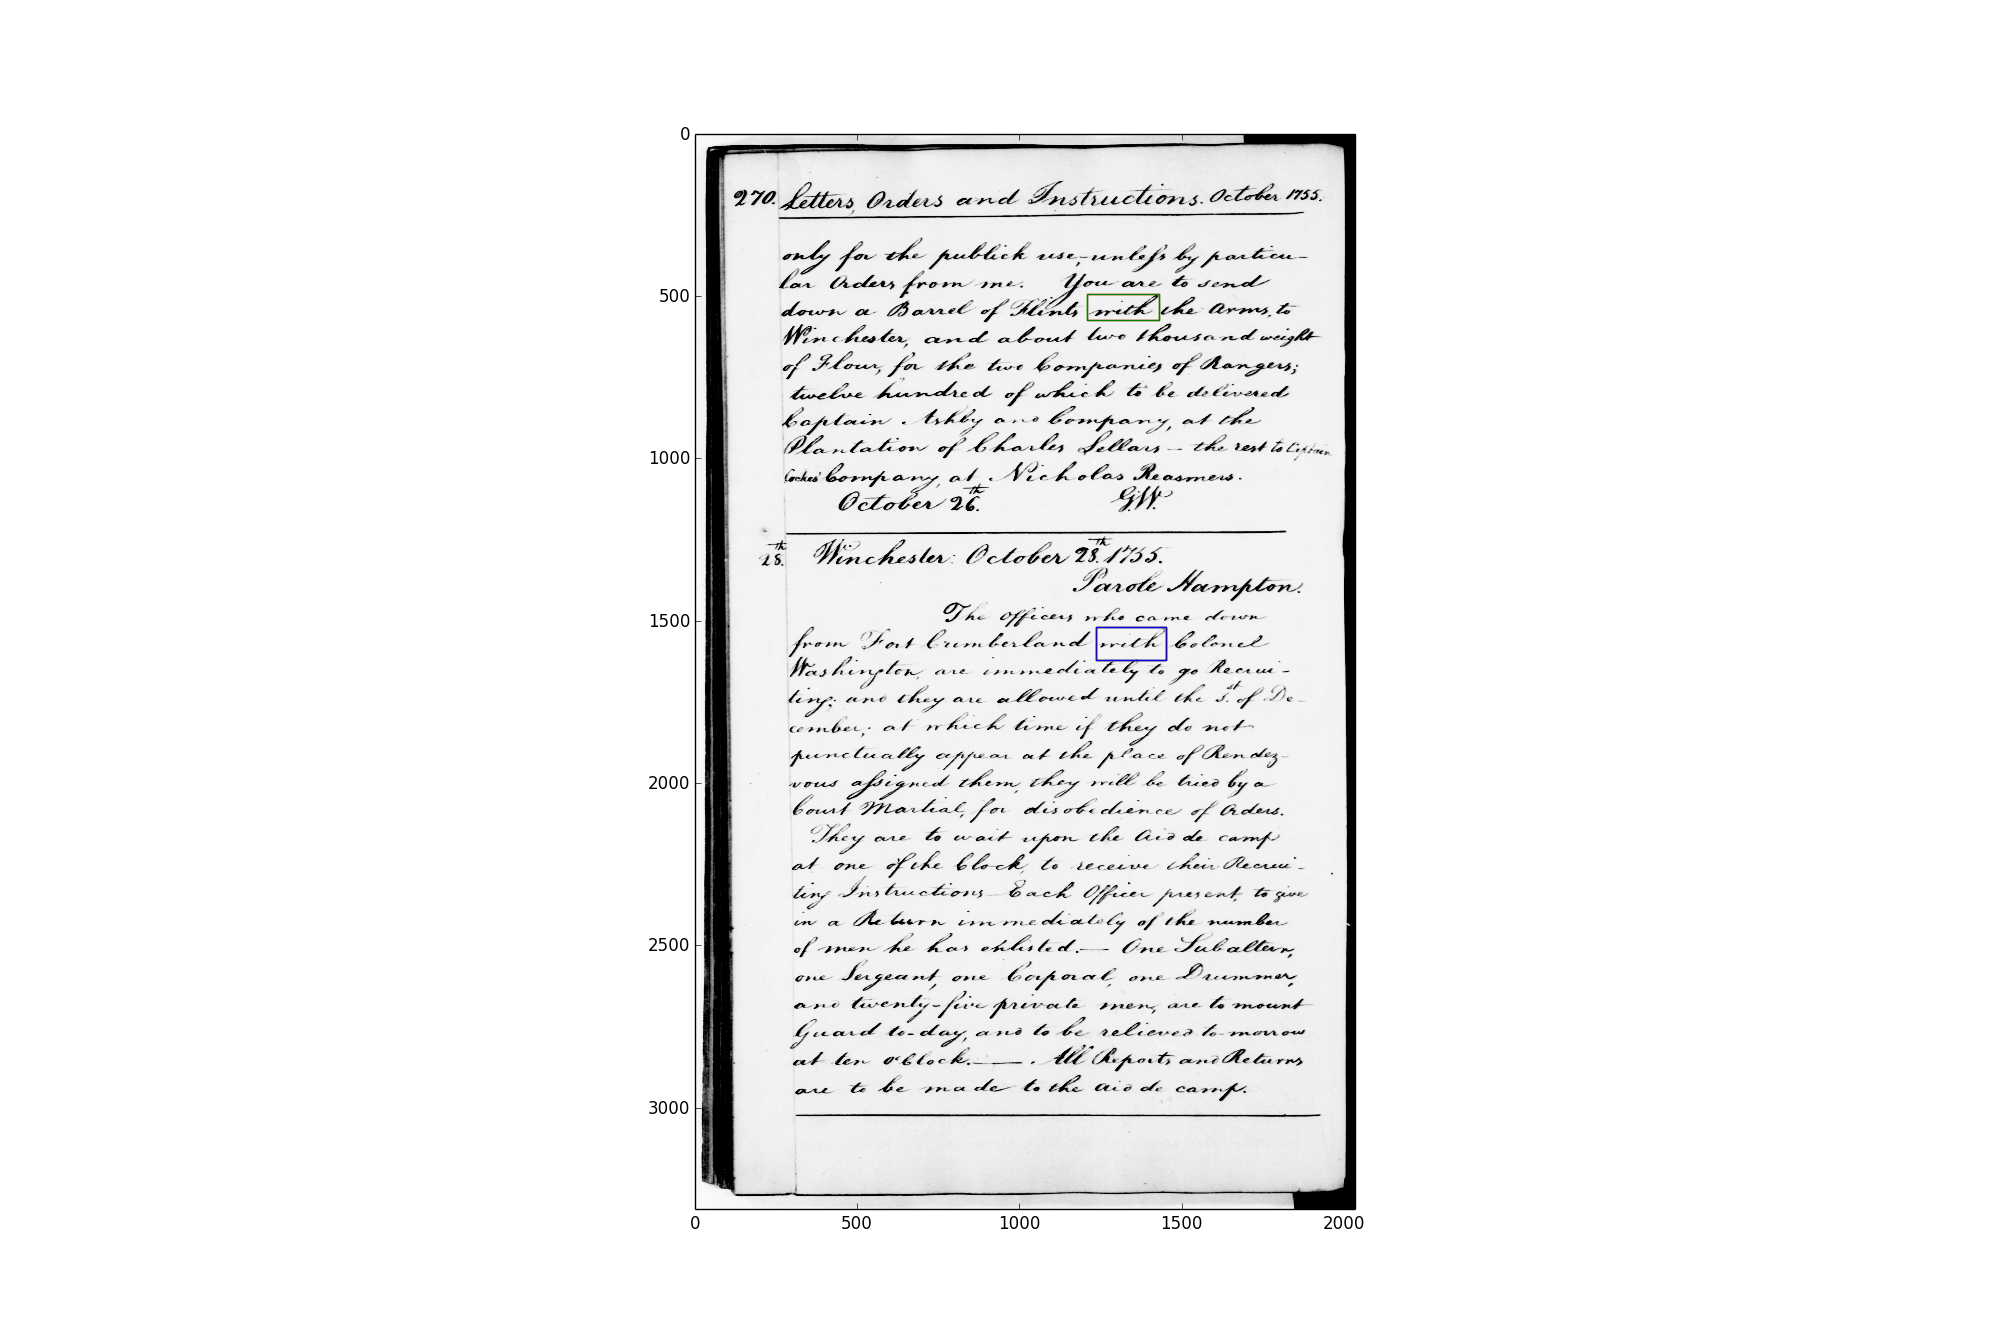 0
500
1000
1500
2000
2500
3000
0 500 1000 1500 2000
270. Letters, Orders and Instructions. October 1755.
only for the publick use,-unless by particu-
lar Orders from me. You are to send
down a Barrel of Flints with the Arms, to
Winchester, and about two thousand weight
of Flour, for the two Companies of Rangers;
twelve hundred of which to be delivered
Captain Ashby and Company, at the
Plantation of Charles Sellars - the rest to Captain
Cockes' Company, at Nicholas Reasmers.
October 26th. G.W.
28th. Winchester: October 28th. 1755.
Parole Hampton.
The Officers who came down
from Fort Cumberland with Colonel
Washington, are immediately to go Recrui-
ting; and they are allowed until the 1st. of De-
cember; at which time if they do not
punctually appear at the place of Rendez-
vous assigned them, they will be tried by a
Court Martial, for disobedience of Orders.
They are to wait upon the Aid de camp
at one of the Clock, to receive their Recrui-
ting Instructions Each Officer present, to give
in a Return immediately of the number
of men he has enlisted.— One Subaltern,
one Sergeant, one Corporal, one Drummer,
and twenty-five private men, are to mount
Guard to-day, and to be relieved to-morrow
at ten o'Clock.—. All Reports and Returns
are to be made to the Aid de camp.